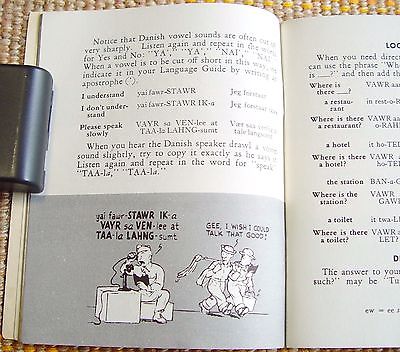 Notice that Danish vowel sounds are often cut off
very sharply. Listen again and repeat in the
for Yes and No: "YA'," "YA'," "NAI'," "NAI'."
When a vowel is to be cut off short in this way
indicate it in your Language Guide by writing
apostrophe (').
I understand yai fawr-STAWR Jeg forstaar
I don't understand yai fawr-STAWR IK-a Jeg forstaar
Please speak slowly VAYR sa VEN-lee at TAA-la LAHNG-sumt Vær saa at tale langsomt
When you hear the Danish speaker drawl a
sound slightly, try to copy it exactly as he says
Listen again and repeat in the word for "speak
"TAA-la," "TAA-la."
yai fawr-STAWR IK-a
VAYR sa VEN-lee at
TAA-la LAHNG-sumt
GEE, I WISH I COULD
TALK THAT GOOD!
LOC
When you need direc
can use the phrase "Wher
is ___?" and then add th
Where is there ___? VAWR
a restaurant in rest-o-R
Where is there a restaurant? VAWR o-RAH
a hotel it ho-TEL
Where is there a hotel? VAWR it ho-TE
the station BAN-a-G
Where is the station? VAWR GAWR
a toilet it twa-L
Where is there a toilet? VAWR LET?
D
The answer to your
such?" may be "Tu
ew = ee s